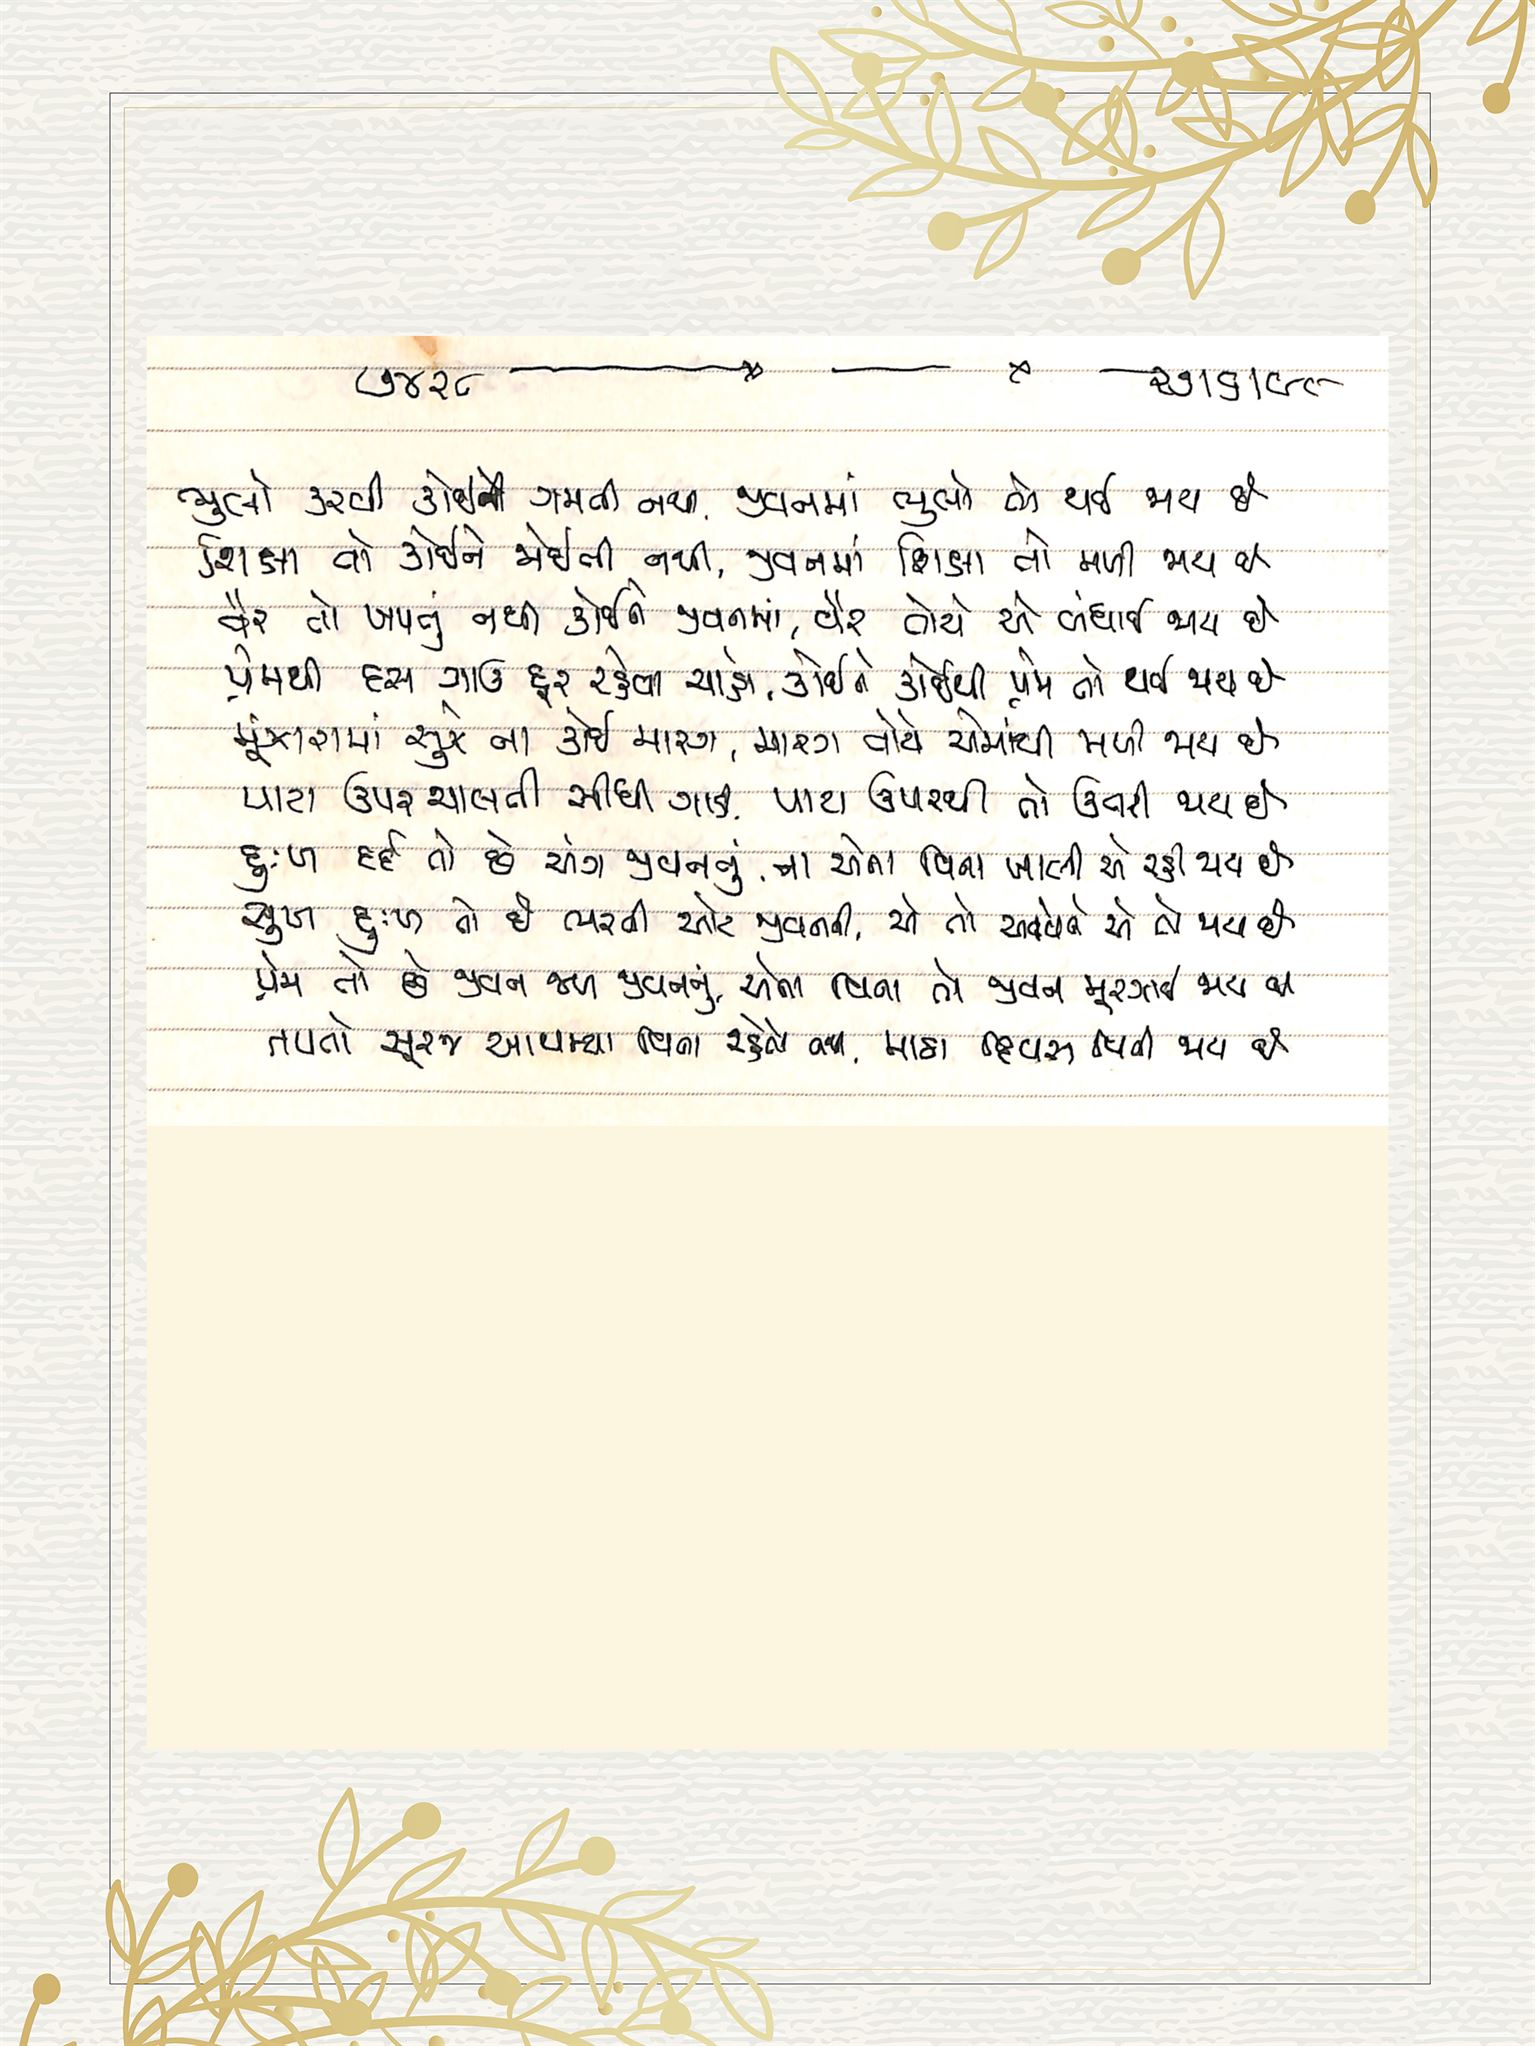 ૮૭૪૨૮ ૨૭।૬।૯૯
ભુલો કરવી કોઈને ગમતી નથી. જીવનમાં ભુલો તો થઈ જાય છે
શિક્ષા તો કોઈને જોઈતી નથી, જીવનમાં શિક્ષા તો મળી જાય છે
વૈર તો ખપતું નથી કોઈને જીવનમાં, વૈર તોયે એ બંધાઈ જાય છે
પ્રેમથી દસ ગાઉ દૂર રહેવા ચાહે, કોઈને કોઈથી પ્રેમ તો થઈ જાય છે
મૂંઝારામાં સુઝે ના કોઈ મારગ, મારગ તોયે એમાંથી મળી જાય છે
પાટા ઉપર ચાલતી સીધી ગાડી. પાટા ઉપરથી તો ઉતરી જાય છે
દુઃખ દર્દ તો છે અંગ જીવનનું. ના એના વિના ખાલી એ રહી જાય છે
સુખ દુઃખ તો છે ભરતી ઓટ જીવનની, એ તો આવે ને એ તો જાય છે
પ્રેમ તો છે જીવન જળ જીવનનું, એના વિના તો જીવન મૂરઝાઈ જાય છે
તપતો સૂરજ આથમ્યા વિના રહેતો નથી. માઠા દિવસ વિતી જાય છે